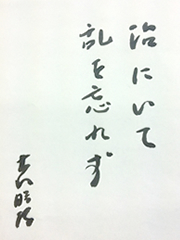 治にいて
乱を忘れず